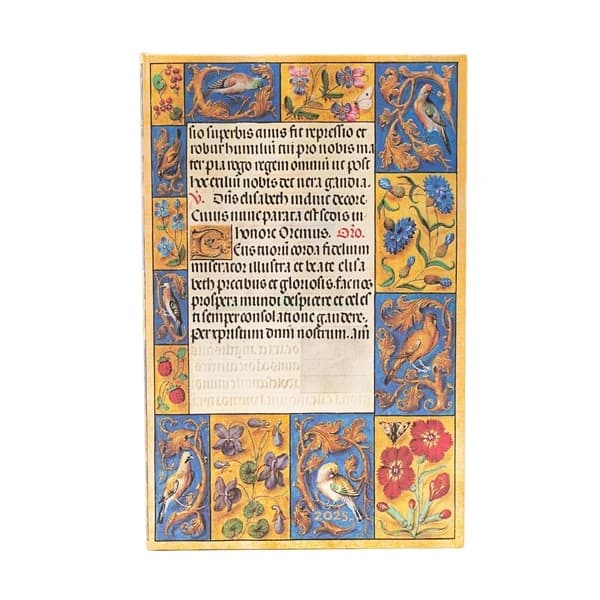 sio superbis cuius fit repressio et
robur humiliū tui pro nobis ma
ter pia rogo regem omniū ut post
hoc exiliū nobis det uera gaudia.
V. Dn̄s elisabeth induit decore.
Cuius nunc parata est sedis in
honore Oremus. Orō.
Deus tuorū corda fidelium
miserator illustra et beate elisa
beth precibus et gloriosis. fac nos
prospera mundi despicere et celes
ti semper consolatione gaudere.
Per xp̄ristum dnm̄ nostrum. am̄
2025